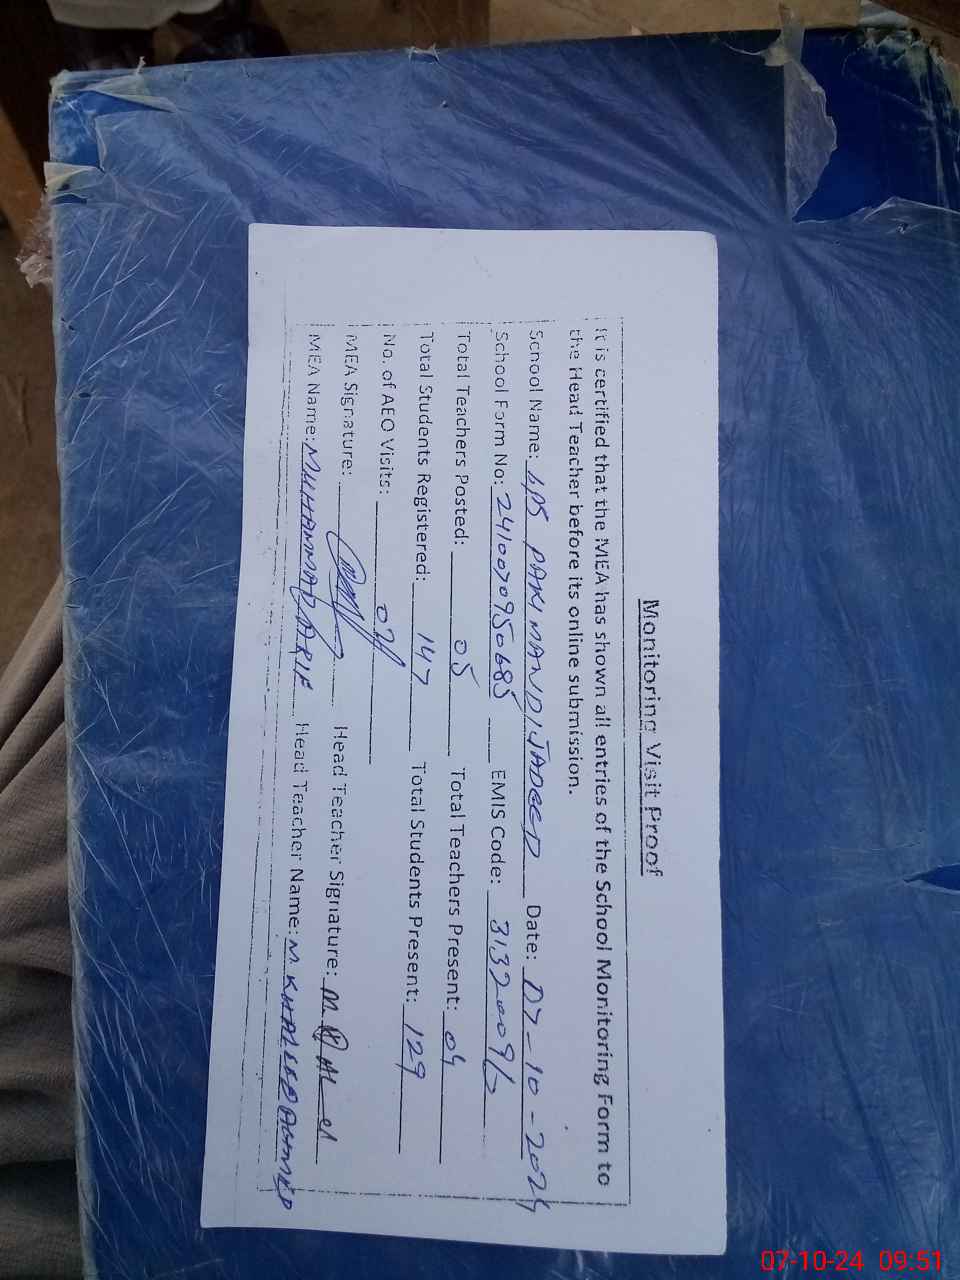 Monitoring Visit Proof
It is certified that the MEA has shown all entries of the School Monitoring Form to
the Head Teacher before its online submission.
School Name: GPS PAKI MANDI JADEED Date: 07-10-2024
School Form No: 2410070950685 EMIS Code: 31320096
Total Teachers Posted: 05 Total Teachers Present: 04
Total Students Registered: 147 Total Students Present: 129
No. of AEO Visits:
MEA Signature: Head Teacher Signature:
MEA Name: MUHAMMAD ARIF Head Teacher Name: M. KHALEED AHMED
07-10-24 09:51